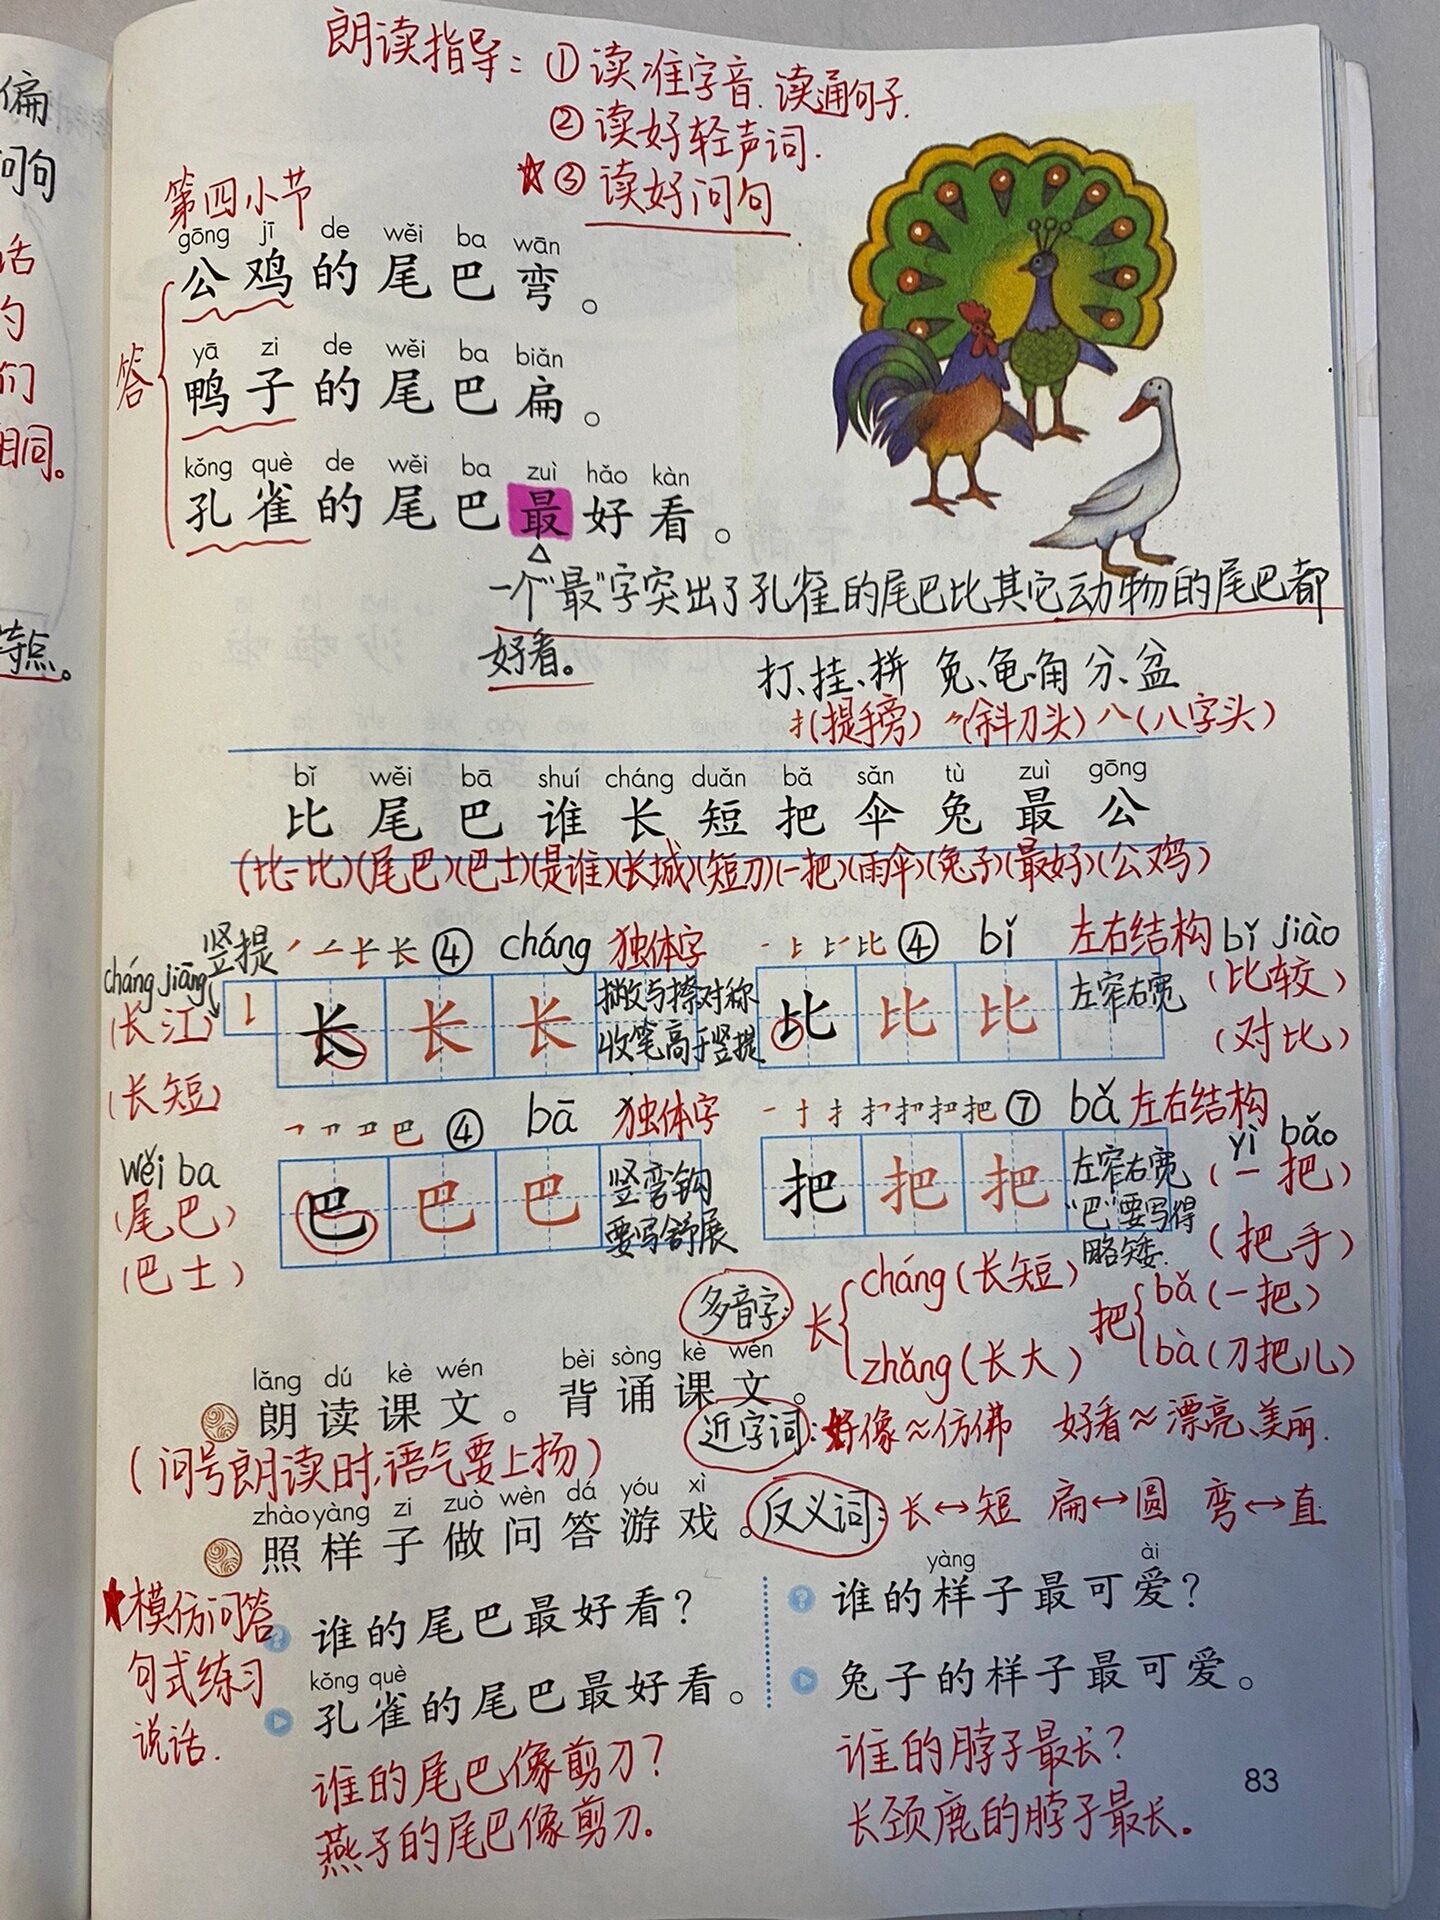 偏
问句
话
的
们
相同。
特点。
朗读指导：①读准字音.读通句子.
②读好轻声词.
☆③读好问句
第四小节
gōng jī de wěi ba wān
公鸡的尾巴弯。
答
yā zi de wěi ba biǎn
鸭子的尾巴扁。
kǒng què de wěi ba zuì hǎo kàn
孔雀的尾巴最好看。
一个“最”字突出了孔雀的尾巴比其它动物的尾巴都
好看。
打、挂、拼 兔、龟、角 分、盆
扌(提手旁) ⺈(斜刀头) 八(八字头)
bǐ wěi bā shuí cháng duǎn bǎ sǎn tù zuì gōng
比 尾 巴 谁 长 短 把 伞 兔 最 公
(比一比)(尾巴)(巴士)(是谁)(长城)(短刀)(一把)(雨伞)(兔子)(最好)(公鸡)
竖提 长 ④ cháng 独体字
cháng jiāng
(长江)
(长短)
长 长 长
撇与捺对称
收笔高于竖提
比 ④ bǐ 左右结构 bǐ jiào
比 比 比 左窄右宽 (比较)
(对比)
巴 ④ bā 独体字
wěi ba
(尾巴)
(巴士)
巴 巴 巴
竖弯钩
要写舒展
把 ⑦ bǎ 左右结构
yì bǎo
把 把 把 左窄右宽 (一把)
“巴”要写得
略矮. (把手)
多音字: 长 cháng(长短) zhǎng(长大) 把 bǎ(一把) bà(刀把儿)
lǎng dú kè wén bèi sòng kè wén
朗读课文。背诵课文。
近字词:好像≈仿佛 好看≈漂亮、美丽.
(问号朗读时,语气要上扬)
zhào yàng zi zuò wèn dá yóu xì
照样子做问答游戏。
反义词:长↔短 扁↔圆 弯↔直
★模仿问答
句式练习
说话.
谁的尾巴最好看?
kǒng què
孔雀的尾巴最好看。
谁的尾巴像剪刀?
燕子的尾巴像剪刀.
yàng ài
谁的样子最可爱?
兔子的样子最可爱。
谁的脖子最长?
长颈鹿的脖子最长。
83